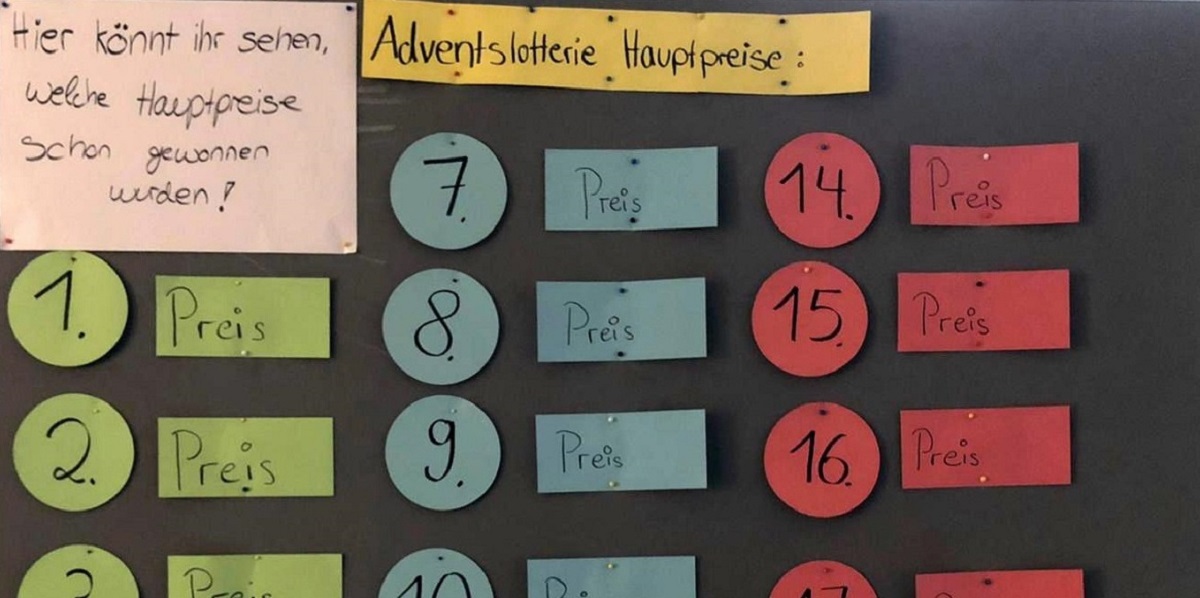 Hier könnt ihr sehen,
welche Hauptpreise
schon gewonnen
wurden!
Adventslotterie Hauptpreise:
1. Preis
2. Preis
3 Preis
7. Preis
8. Preis
9. Preis
10
14. Preis
15. Preis
16. Preis
17